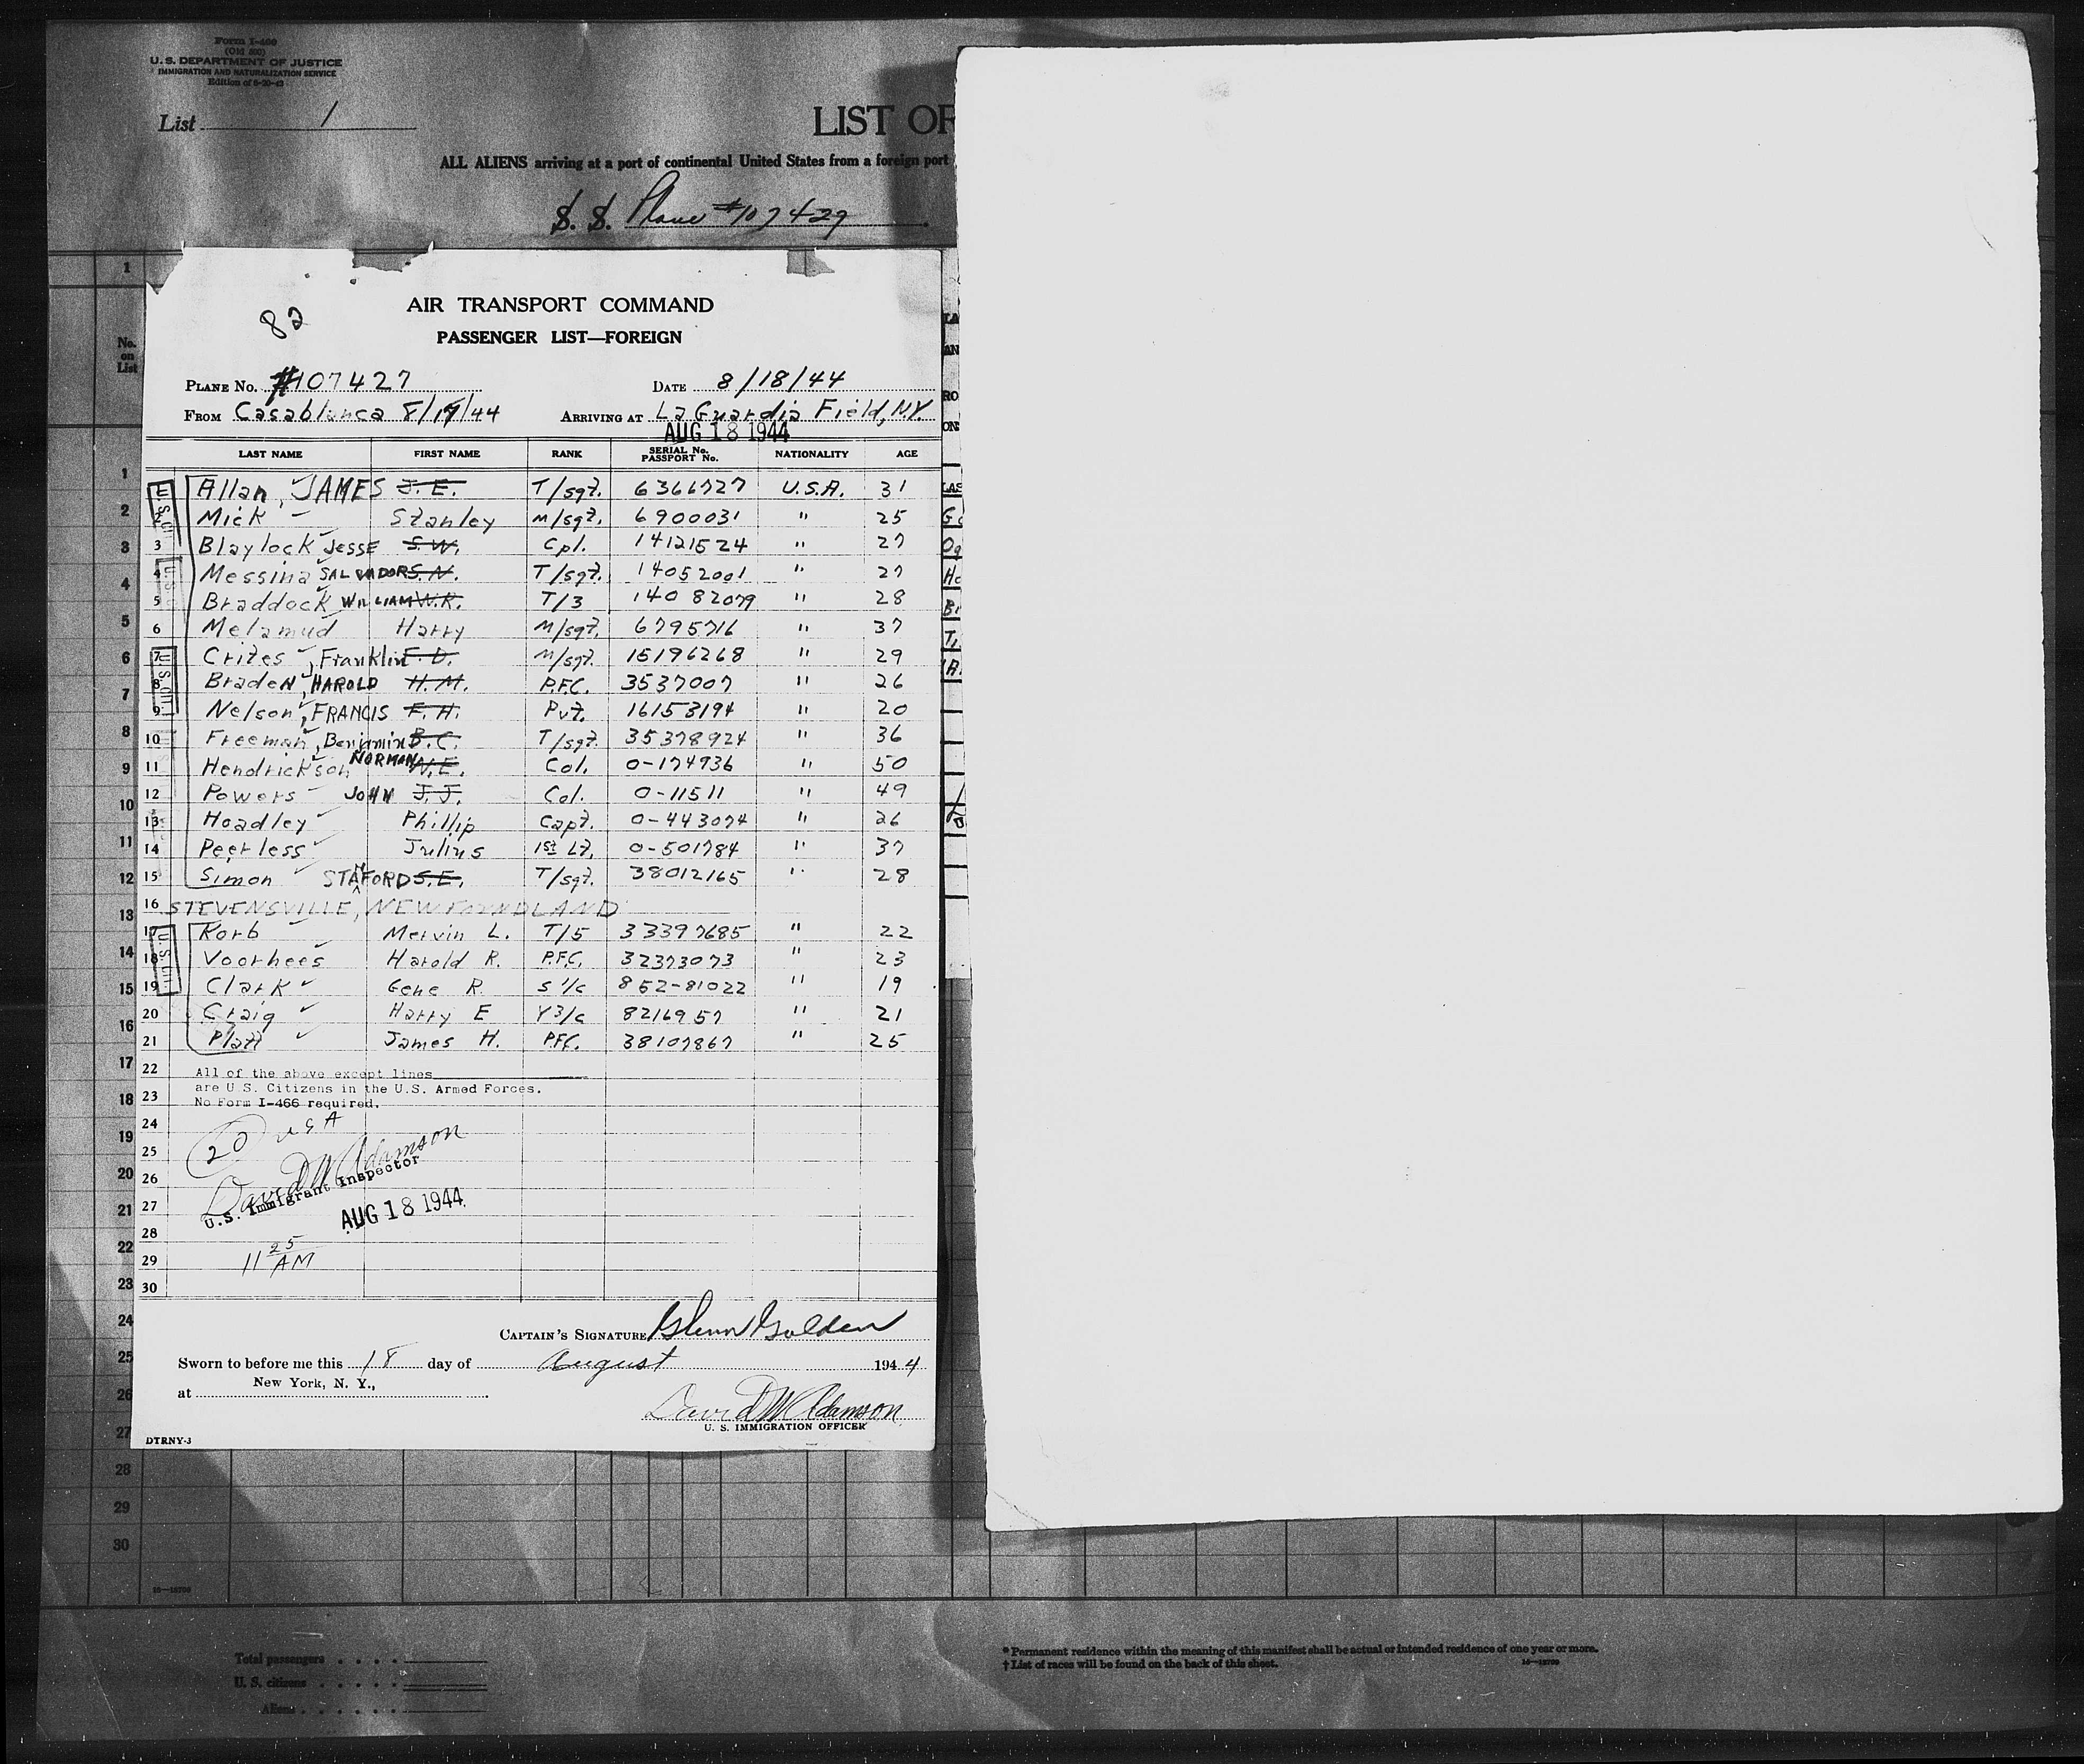 Form I-466
(Old 500)
U. S. DEPARTMENT OF JUSTICE
IMMIGRATION AND NATURALIZATION SERVICE
Edition of 6-20-43
List 1
LIST OF
ALL ALIENS arriving at a port of continental United States from a foreign port
S. S. Plane #107429
82
AIR TRANSPORT COMMAND
PASSENGER LIST—FOREIGN
PLANE No. #107427 DATE 8/18/44
FROM Casablanca 8/17/44 ARRIVING AT La Guardia Field, N.Y.
AUG 18 1944
No. on List
LAST NAME FIRST NAME RANK SERIAL No. PASSPORT No. NATIONALITY AGE
1 Allan, JAMES J. E. T/sgt. 6366727 U.S.A. 31
2 Mick Stanley M/sgt. 6900031 " 25
3 Blaylock Jesse S. W. Cpl. 14121524 " 27
4 Messina SALVADOR S. N. T/sgt. 14052001 " 27
5 Braddock WILLIAM W. K. T/3 14082079 " 28
6 Melamud Harry M/sgt. 6795716 " 37
7 Crites, Franklin F. D. M/sgt. 15196268 " 29
8 Braden, HAROLD H. M. P.F.C. 3537007 " 26
9 Nelson, FRANCIS F. H. Pvt. 16153194 " 20
10 Freeman, Benjamin B. C. T/sgt. 35378924 " 36
11 Hendrickson NORMAN N. E. Col. 0-174936 " 50
12 Powers JOHN J. J. Col. 0-11511 " 49
13 Hoadley Phillip Capt. 0-443074 " 26
14 Peerless Julius 1st Lt. 0-501784 " 37
15 Simon STAFFORD S. E. T/sgt. 38012165 " 28
16 STEVENSVILLE, NEWFOUNDLAND
17 Korb Mervin L. T/5 33397685 " 22
18 Voorhees Harold R. P.F.C. 32373073 " 23
19 Clark Gene R. S 1/c 852-81022 " 19
20 Craig Harry E Y3/c 8216957 " 21
21 Platt James H. P.F.C. 38107867 " 25
22 All of the above except lines
are U.S. Citizens in the U.S. Armed Forces.
23 No Form I-466 required.
24 USA
25 20
26 David W Adamson
U.S. Immigrant Inspector
27 AUG 18 1944
28
29 11 25 AM
30
CAPTAIN'S SIGNATURE Glenn Golden
Sworn to before me this 18 day of August 194 4
at New York, N. Y.,
David W Adamson
U. S. IMMIGRATION OFFICER
DTRNY-3
28
29
30
16—18709
Total passengers
U. S. citizens
Aliens
* Permanent residence within the meaning of this manifest shall be actual or intended residence of one year or more.
† List of races will be found on the back of this sheet.
16—18709